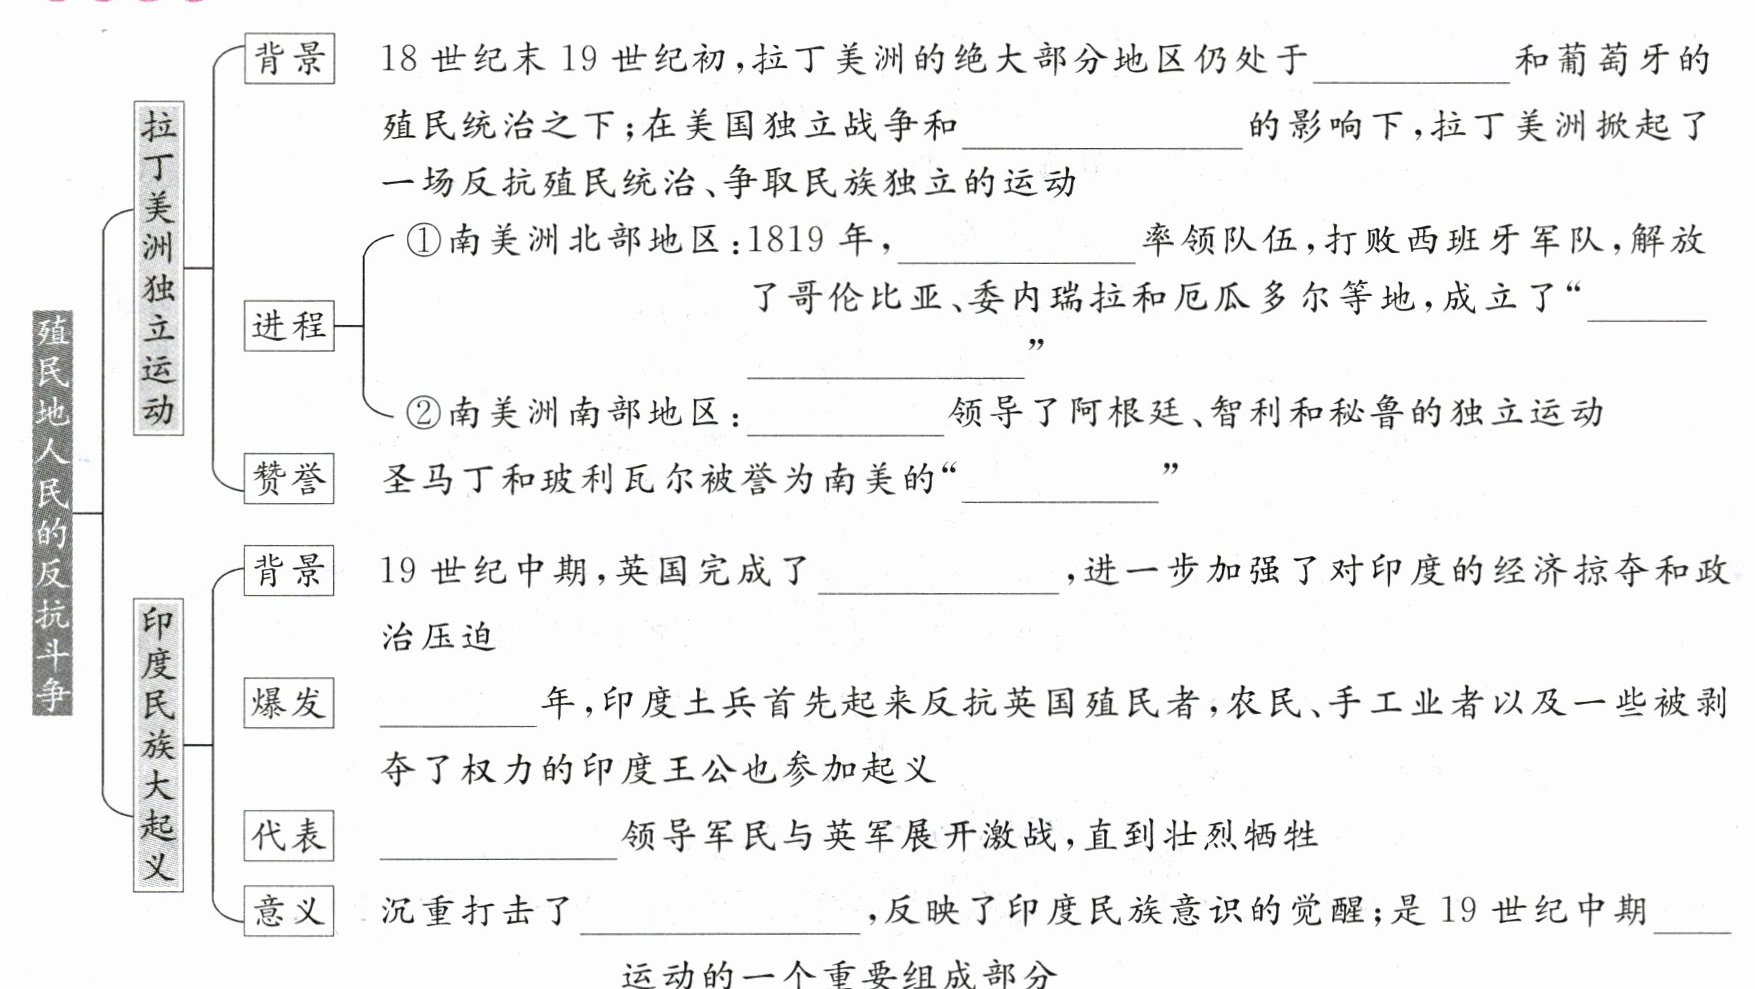 殖民地人民的反抗斗争
拉丁美洲独立运动
背景
18 世纪末 19 世纪初,拉丁美洲的绝大部分地区仍处于__________和葡萄牙的
殖民统治之下;在美国独立战争和______________的影响下,拉丁美洲掀起了
一场反抗殖民统治、争取民族独立的运动
进程
①南美洲北部地区:1819 年,____________率领队伍,打败西班牙军队,解放
了哥伦比亚、委内瑞拉和厄瓜多尔等地,成立了“______
______________”
②南美洲南部地区:__________领导了阿根廷、智利和秘鲁的独立运动
赞誉
圣马丁和玻利瓦尔被誉为南美的“__________”
印度民族大起义
背景
19 世纪中期,英国完成了____________,进一步加强了对印度的经济掠夺和政
治压迫
爆发
________年,印度土兵首先起来反抗英国殖民者,农民、手工业者以及一些被剥
夺了权力的印度王公也参加起义
代表
____________领导军民与英军展开激战,直到壮烈牺牲
意义
沉重打击了______________,反映了印度民族意识的觉醒;是 19 世纪中期____
运动的一个重要组成部分